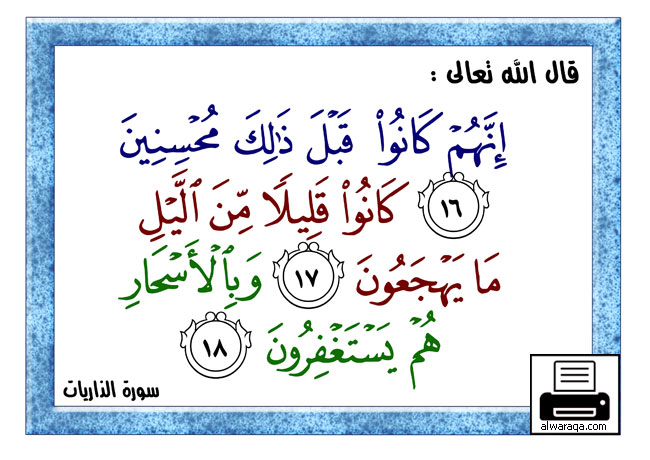 قال الله تعالى :
إِنَّهُمۡ كَانُواْ قَبۡلَ ذَٰلِكَ مُحۡسِنِينَ
١٦ كَانُواْ قَلِيلًا مِّنَ ٱلَّيۡلِ
مَا يَهۡجَعُونَ ١٧ وَبِٱلۡأَسۡحَارِ
هُمۡ يَسۡتَغۡفِرُونَ ١٨
سورة الذاريات
alwaraqa.com